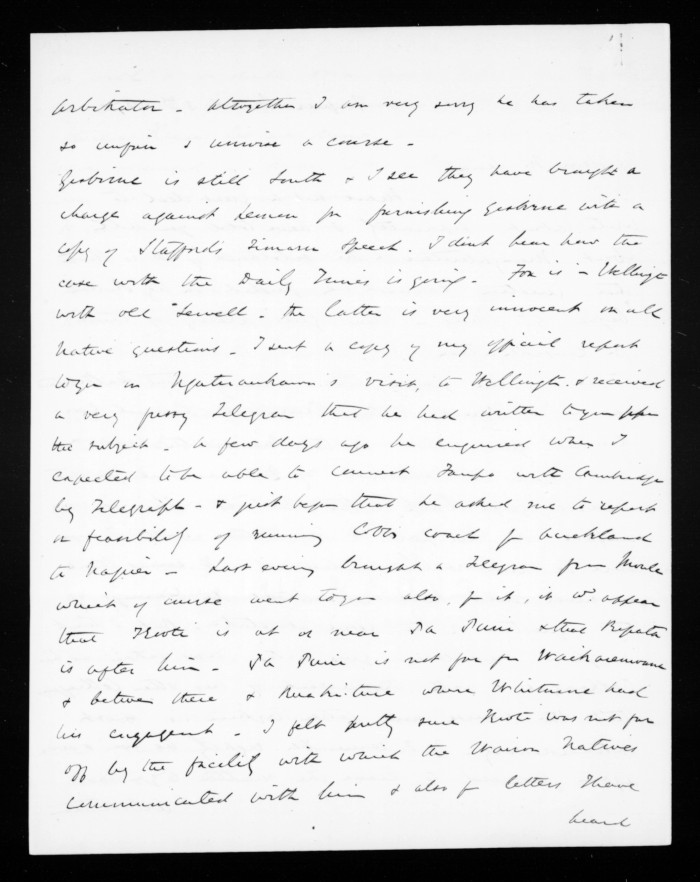 Arbitrator - Altogether I am very sorry he has taken
so unfair & unwise a course -
Gisborne is still South & I see they have brought a
charge against Lemon for furnishing Gisborne with a
copy of Stafford's Timaru Speech. I dont hear how the
case with the Daily Times is going. Fox is in Wellingt
with old Sewell - the latter is very innocent on all
Native questions. I sent a copy of my official report
to you on visit, to Wellingtn. & received
a very Telegram that he had written to you upon
the subject - A few days ago he enquired when I
expected to be able to connect Taupo with Cambridge
by Telegraph - & just before that he asked me to report
on feasibility of running Cobbs coach fr Auckland
to Napier - Last eveng brought a Telegram from Moule
which of course went to you also, fr it, it wd. appear
that Kooti is at or near Te & that Ropata
is after him - Te is not far fr Waikaremoana
& between there & Ruakiture where Whitmore had
his engagemt - I felt pretty sure Kooti was not far
off by the facility with which the Wairoa Natives
communicated with him & also fr letters I have
heard